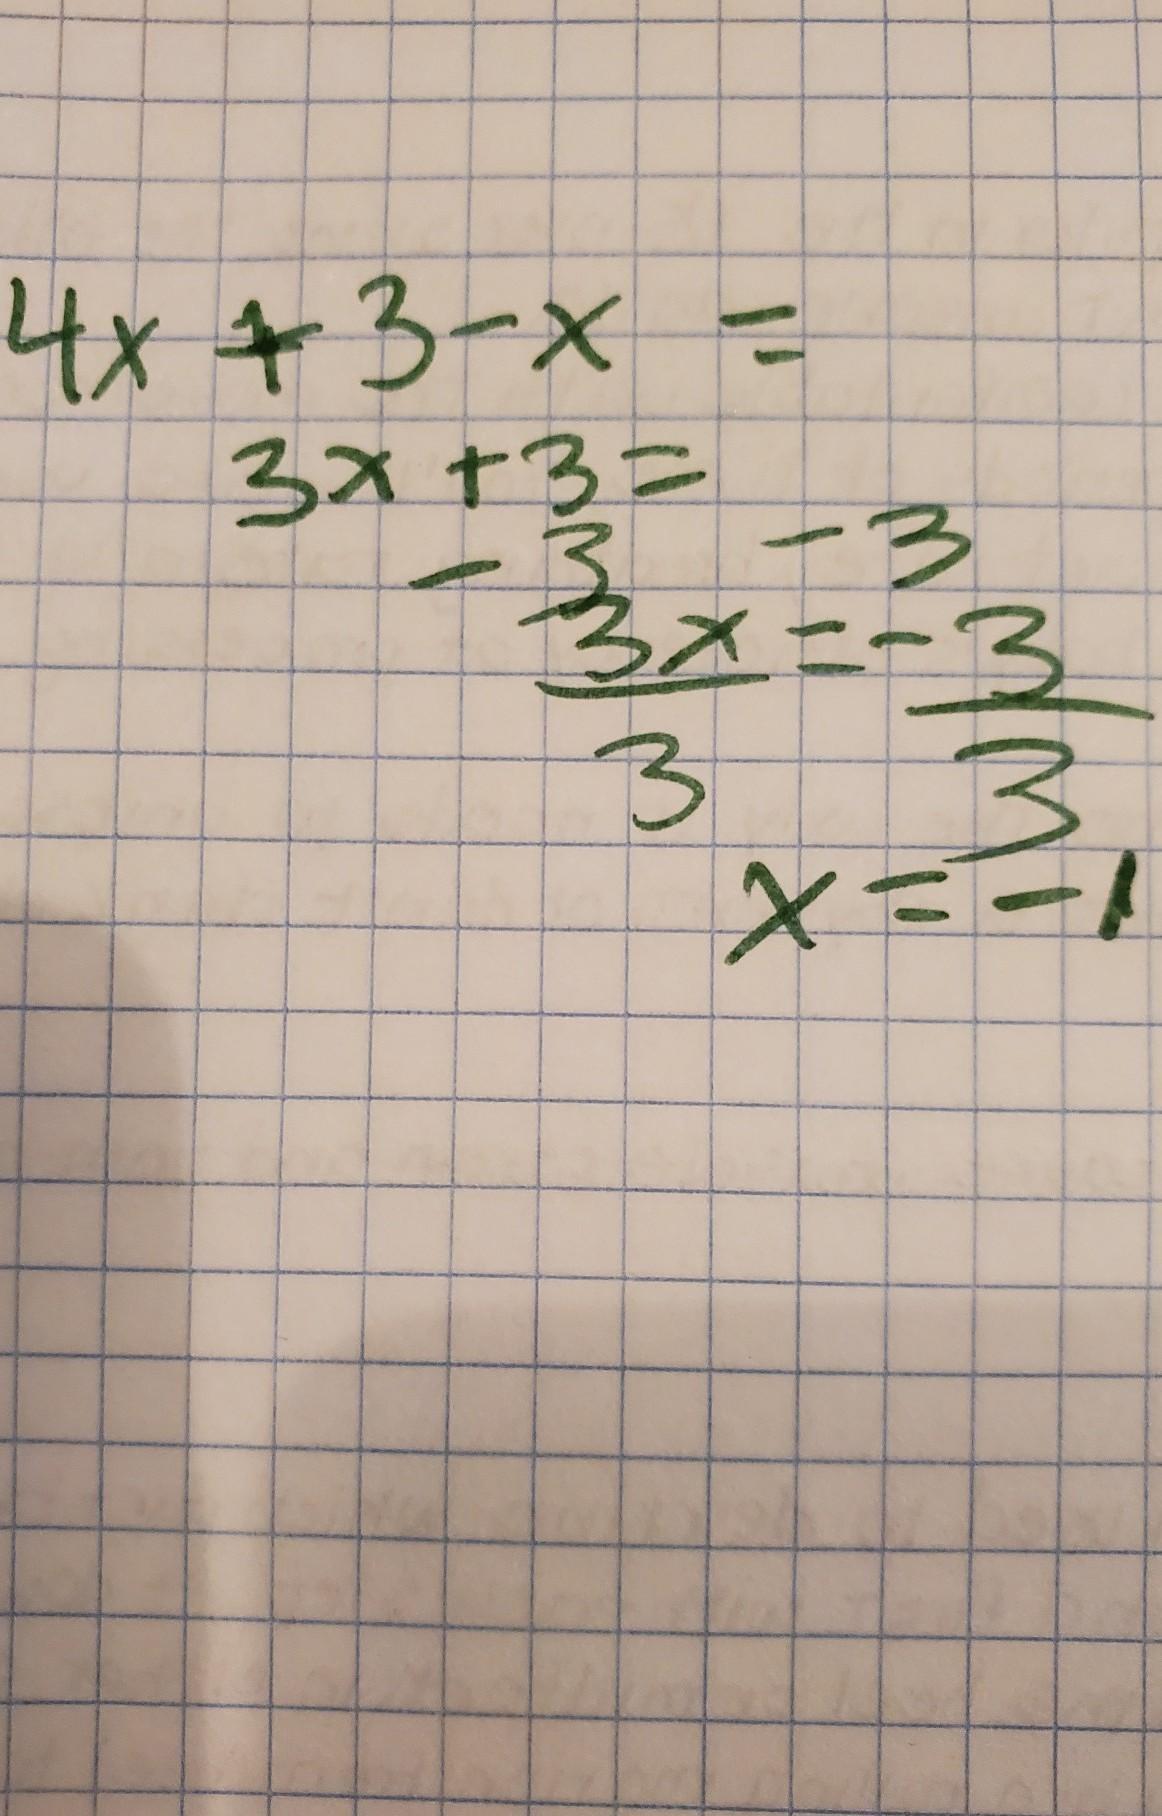 4x + 3 - x =
3x + 3 =
- 3 - 3
3x = - 3
3 3
x = - 1